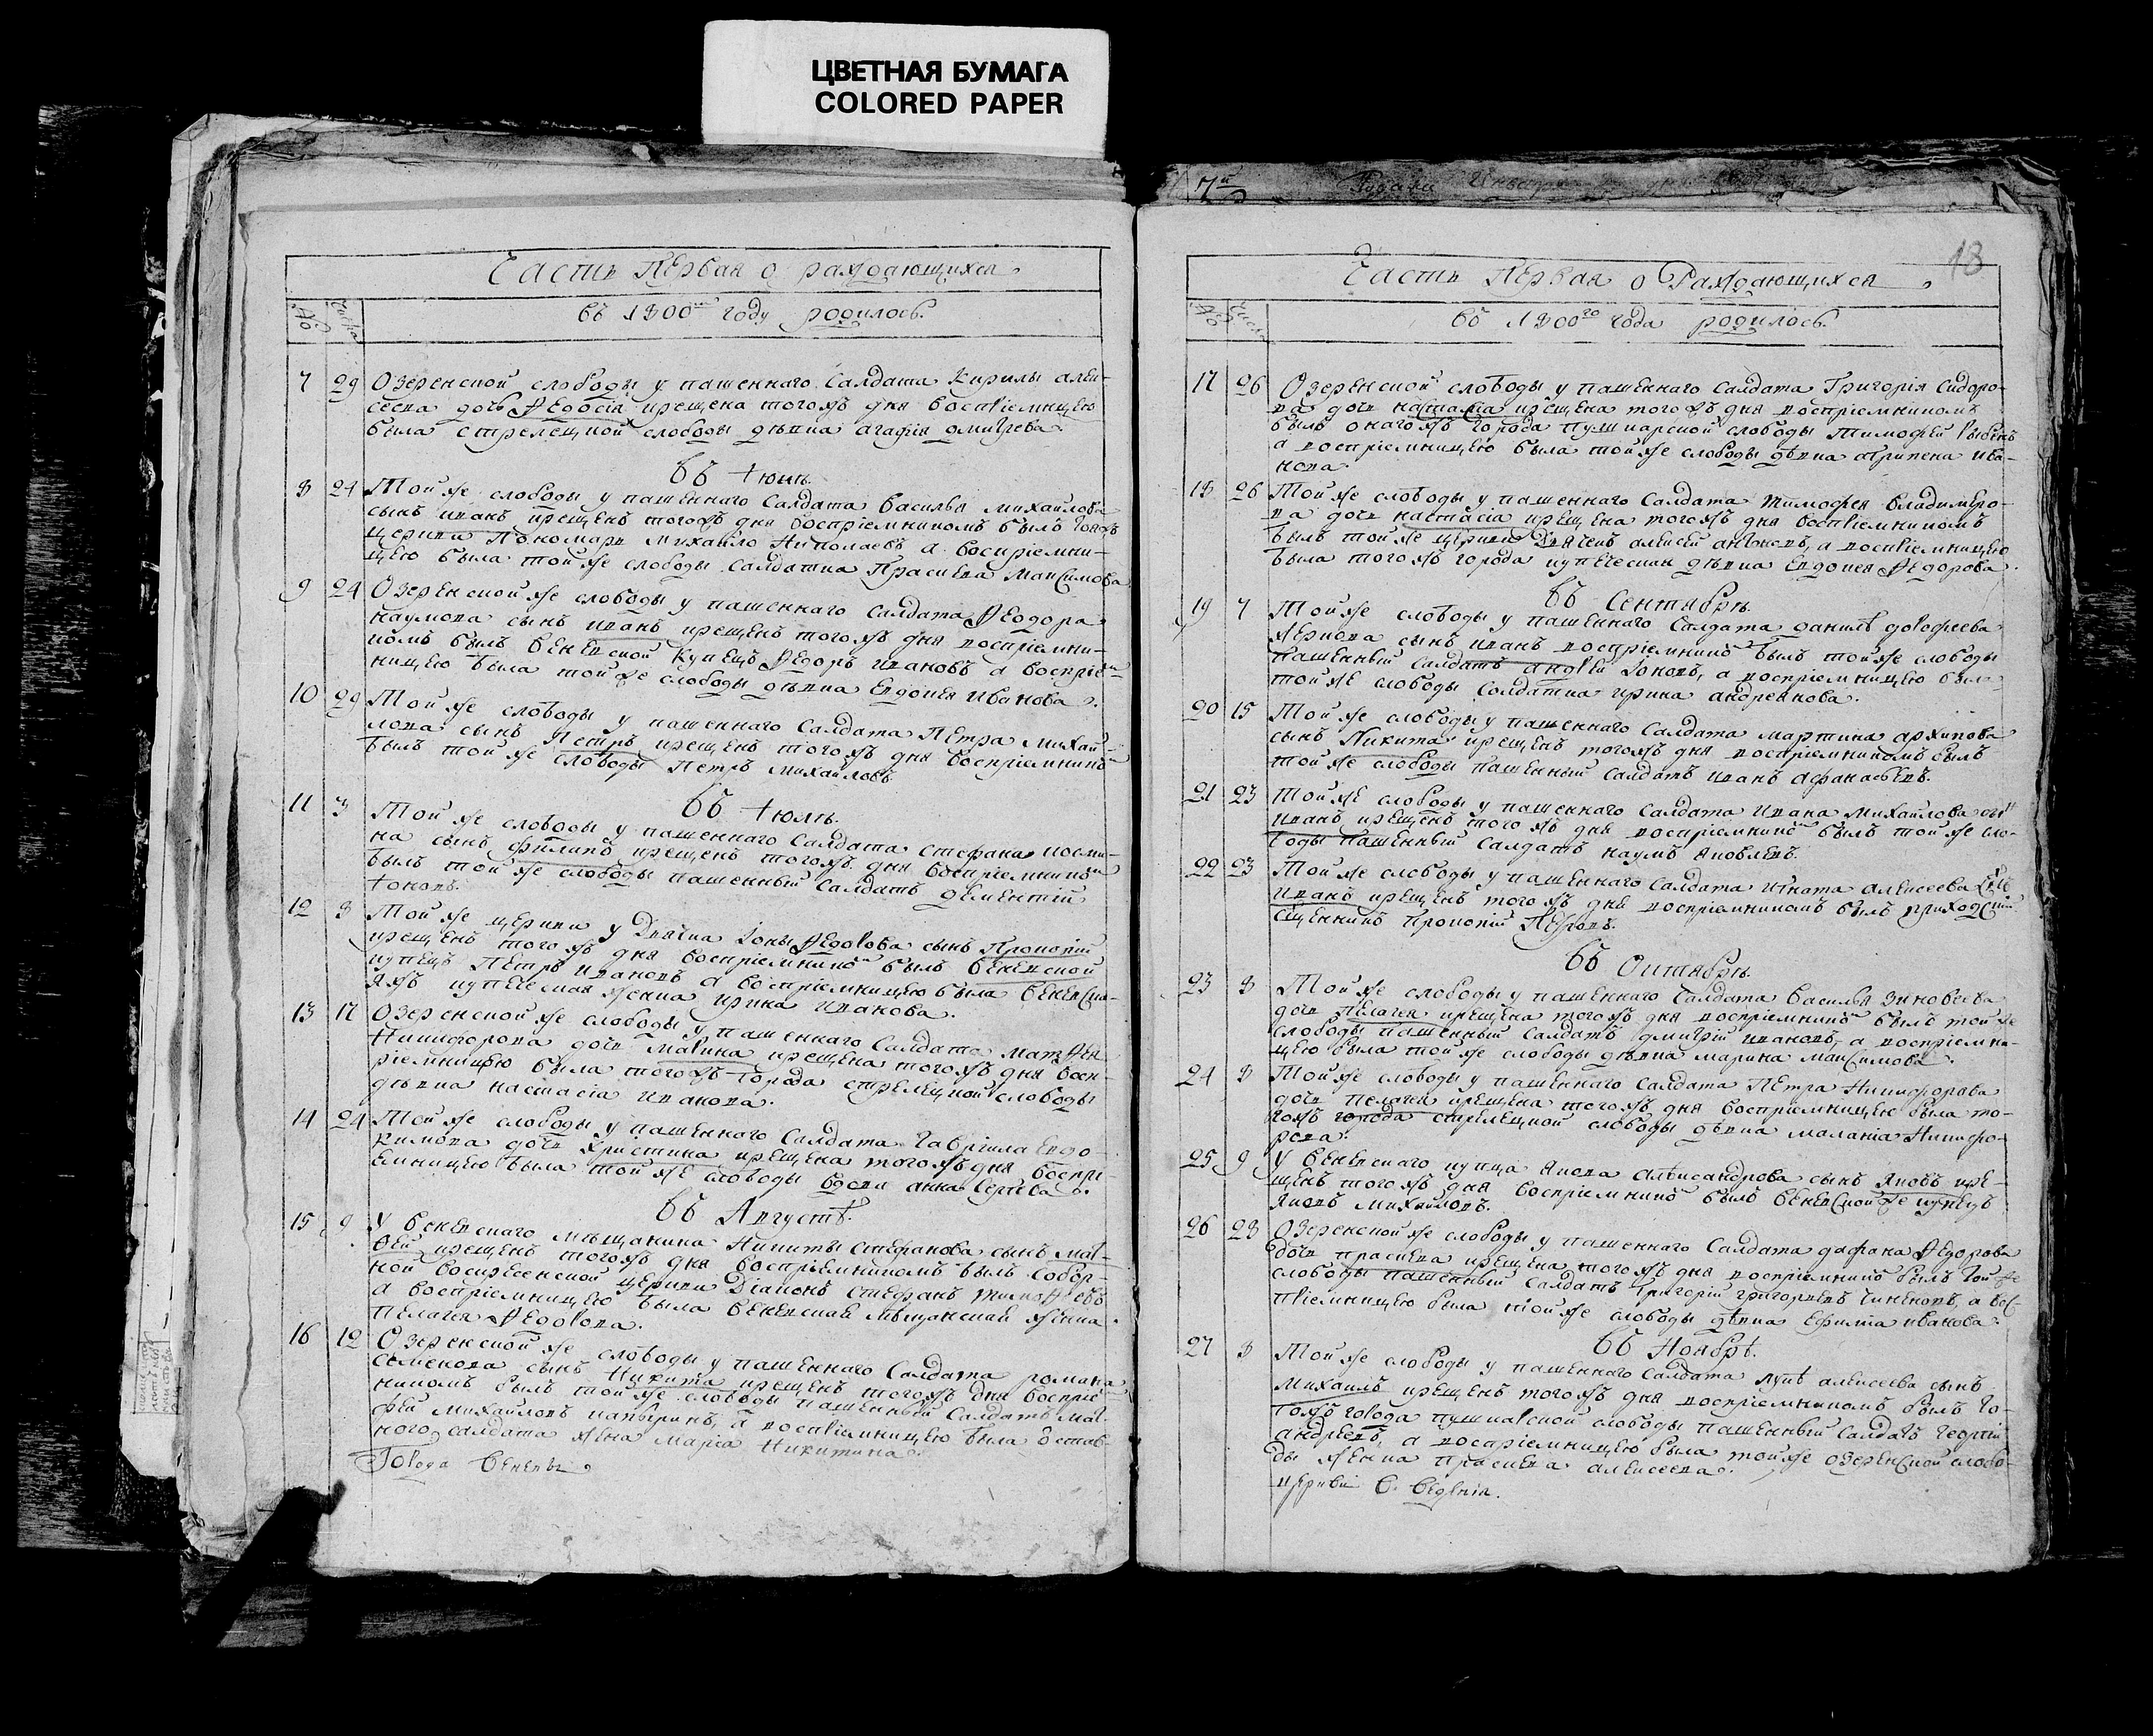 ЦВЕТНАЯ БУМАГА
COLORED PAPER
Часть первая о раждающихся
№ Числа
въ 1800м году родилось
7 29 Озеренской слободы у пашеннаго салдата кирилы алек-
сеева дочь Ѳедосiа крещена тогожъ дня воспрiемницею
была стрелецкой слободы дѣвка агафiя дмитрева
въ Iюнѣ
8 24 Той же слободы у пашеннаго салдата василья михаилова
сынъ иванъ крещенъ тогожъ дня воспрiемникомъ былъ тояжъ
церкви пономарь михайло николаевъ а воспрiемни-
цею была той же слободы салдатка Праскева максимова
9 24 Озеренской же слободы у пашеннаго салдата Ѳеодора
наумова сынъ иванъ крещенъ тогожъ дня воспрiемни-
комъ былъ веневской купецъ Ѳедоръ ивановъ а воспрiем
ницею была той же слободы дѣвка Евдокея иванова
10 29 Той же слободы у пашеннаго салдата Петра михай-
лова сынъ Петръ крещенъ тогожъ дня воспрiемником
былъ той же слободы Петръ михаиловъ
въ Iюлѣ
11 3 Той же слободы у пашеннаго салдата стефана косми-
на сынъ филипъ крещенъ тогожъ дня воспрiемником
былъ той же слободы пашенный салдатъ дементiй
Iоновъ
12 8 Той же церкви у Дьячка Iоны Ѳедорова сынъ Прокопiй
крещенъ тогожъ дня воспрiемником былъ веневской
купецъ Петръ ивановъ а воспрiемницею была веневска-
яжъ купеческая женка ирина иванова
13 17 Озеренской же слободы у пашеннаго салдата матѳея
Никифорова дочь марина крещена тогожъ дня восп-
рiемницею была тогожъ города стрелецкой слободы
дѣвка настасiа иванова
14 24 Той же слободы у пашеннаго салдата гаврiила Евдо-
кимова дочь христина крещена тогожъ дня воспрi-
емницею была той же слободы вдова анна сергѣева
въ Августѣ
15 9 У веневскаго мѣщанина Никиты стефанова сынъ мат-
ѳей крещенъ тогожъ дня воспрiемникомъ былъ собор-
ной воскресенской церкви Дiаконъ стефанъ тимоѳеевъ
а воспрiемницею была веневская мѣщанская женка
Пелагея Ѳедорова
16 12 Озеренской же слободы у пашеннаго салдата романа
семенова сынъ Никита крещенъ тогожъ дня воспрiем
никомъ былъ той же слободы пашенный салдатъ мат-
фей михаиловъ а воспрiемницею была остав-
ного салдата жена марiа никитина
Города Венева
18
Часть первая о Раждающихся
№ Числа
въ 1800го года родилось
17 26 Озеренской слободы у пашеннаго салдата Григорiя сидоро-
ва дочь наталiа крещена тогожъ дня воспрiемникомъ
былъ онагожъ города пушкарской слободы тимофей
а воспрiемницею была той же слободы дѣвка агрипена ива-
нова
18 26 Той же слободы у пашеннаго салдата тимофея владимеро-
ва дочь настасiа крещена тогожъ дня воспрiемникомъ
былъ той же церкви Дьячекъ алексей антоновъ, а воспрiемницею
была тогожъ города купеческая дѣвка Евдокея Ѳедорова
въ Сентябрѣ
19 7 Той же слободы у пашеннаго салдата данилы дорофеева
сынъ иванъ воспрiемником былъ той же слободы
пашенный салдатъ андрей Iоновъ, а воспрiемницею была
той же слободы салдатка ирина андреянова
20 15 Той же слободы у пашеннаго салдата мартина архипова
сынъ Никита крещенъ тогожъ дня воспрiемникомъ былъ
той же слободы пашенный салдатъ иванъ афанасьевъ
21 23 Той же слободы у пашеннаго салдата ивана михаилова сын
иванъ крещенъ тогожъ дня воспрiемником былъ той же сло-
боды пашенный салдатъ наумъ яковлевъ
22 23 Той же слободы у пашеннаго салдата игната алексеева сынъ
иванъ крещенъ тогожъ дня воспрiемникомъ былъ приходскiй
священникъ прокопiй Петровъ
въ Октябрѣ
23 8 Той же слободы у пашеннаго салдата василья зиновеева
дочь пелагея крещена тогожъ дня воспрiемником былъ той же
слободы пашенный салдатъ дмитрiй ивановъ, а воспрiемни-
цею была той же слободы дѣвка марина максимова
24 8 Той же слободы у пашеннаго салдата Петра Никифорова
дочь пелагея крещена тогожъ дня воспрiемницею была то-
гожъ города стрелецкой слободы дѣвка маланiа Никифо-
рова
25 9 У веневскаго купца якова александрова сынъ яковъ кре-
щенъ тогожъ дня воспрiемником былъ веневской же купецъ
яковъ михаиловъ
26 28 Озеренской же слободы у пашеннаго салдата Ѳедорова
дочь праскева крещена тогожъ дня воспрiемником былъ той же
слободы пашенный салдатъ григорiй григорьевъ а вос-
прiемницею была той же слободы дѣвка Ефимiа иванова
въ Ноябрѣ
27 8 Той же слободы у пашеннаго салдата луки алексеева сынъ
михаилъ крещенъ тогожъ дня воспрiемникомъ былъ то-
гожъ города пушкарской слободы пашенный салдатъ георгiй
андреевъ, а воспрiемницею была той же озеренской слобо-
ды женка праскева алексеева
церкви